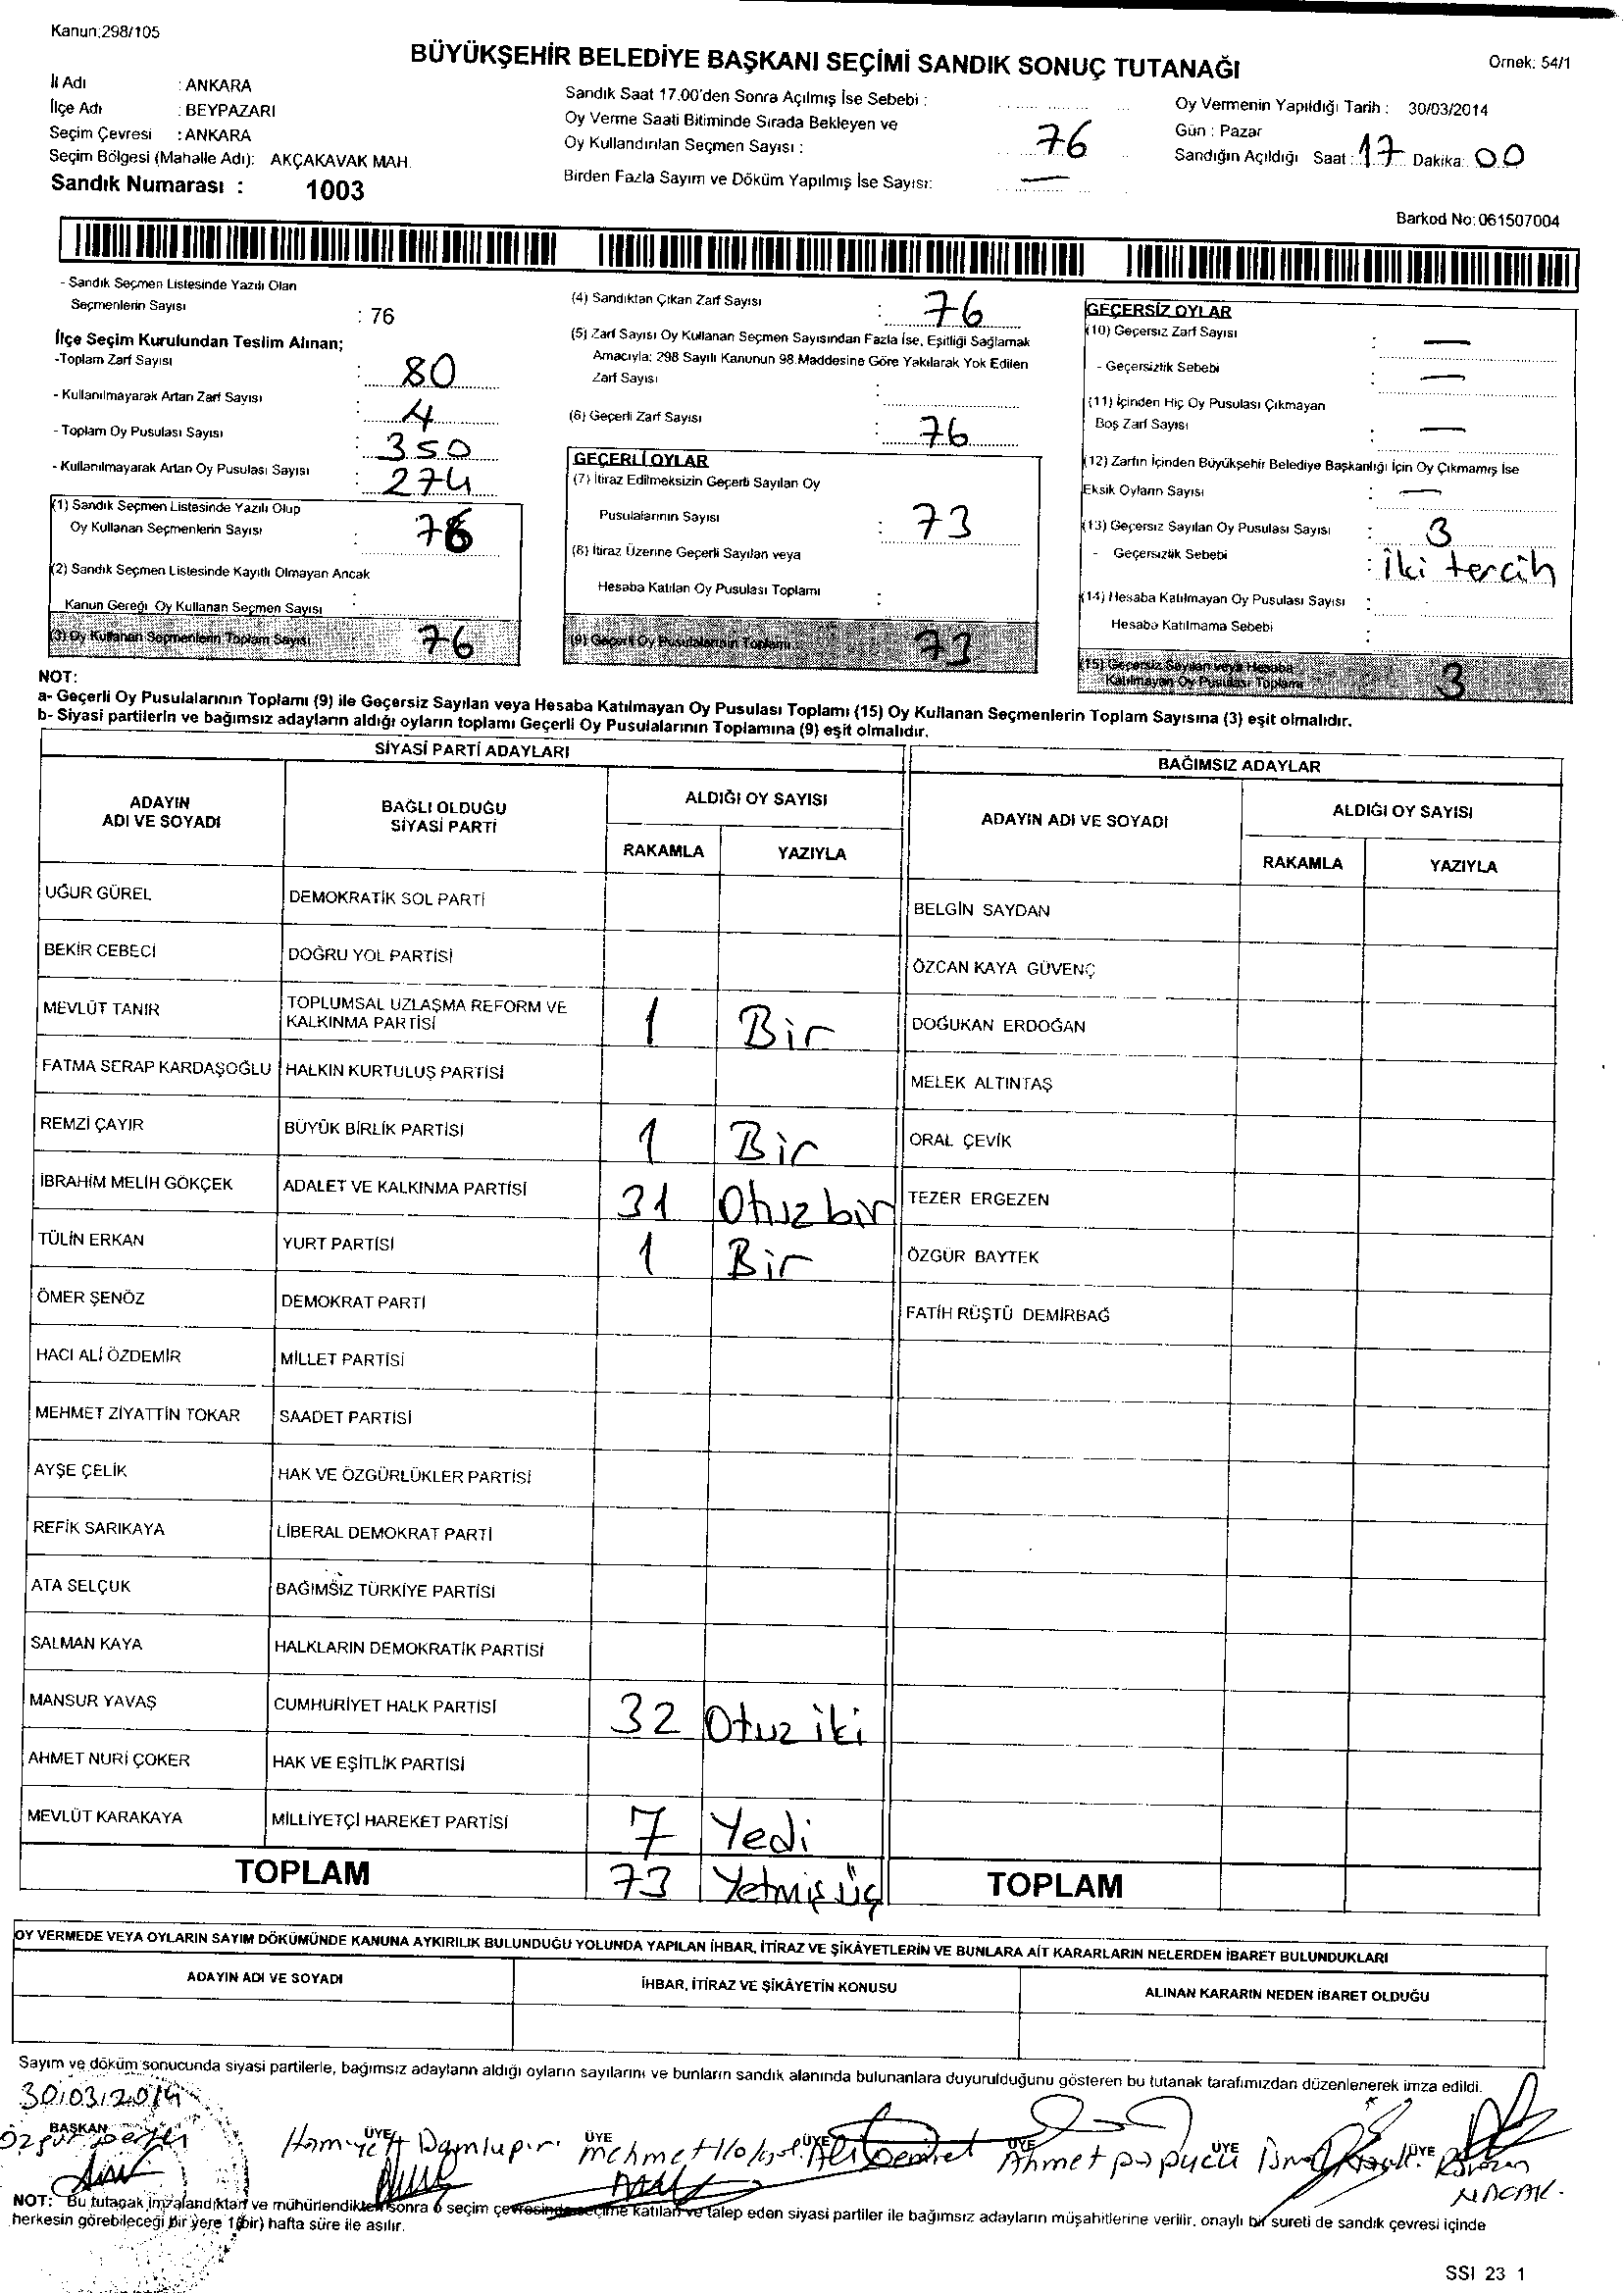 Kanun:298/105
BÜYÜKŞEHİR BELEDİYE BAŞKANI SEÇİMİ SANDIK SONUÇ TUTANAĞI
Örnek: 54/1
İl Adı : ANKARA
İlçe Adı : BEYPAZARI
Seçim Çevresi : ANKARA
Seçim Bölgesi (Mahalle Adı): AKÇAKAVAK MAH.
Sandık Numarası : 1003
Sandık Saat 17.00'den Sonra Açılmış İse Sebebi :
Oy Verme Saati Bitiminde Sırada Bekleyen ve
Oy Kullandırılan Seçmen Sayısı : 76
Birden Fazla Sayım ve Döküm Yapılmış İse Sayısı: —
Oy Vermenin Yapıldığı Tarih : 30/03/2014
Gün : Pazar
Sandığın Açıldığı Saat : 17 Dakika: 00
Barkod No: 061507004
- Sandık Seçmen Listesinde Yazılı Olan
Seçmenlerin Sayısı : 76
İlçe Seçim Kurulundan Teslim Alınan;
-Toplam Zarf Sayısı : 80
- Kullanılmayarak Artan Zarf Sayısı : 4
- Toplam Oy Pusulası Sayısı : 350
- Kullanılmayarak Artan Oy Pusulası Sayısı : 274
(1) Sandık Seçmen Listesinde Yazılı Olup
Oy Kullanan Seçmenlerin Sayısı : 76
(2) Sandık Seçmen Listesinde Kayıtlı Olmayan Ancak
Kanun Gereği Oy Kullanan Seçmen Sayısı :
(3) Oy Kullanan Seçmenlerin Toplam Sayısı 76
(4) Sandıktan Çıkan Zarf Sayısı : 76
(5) Zarf Sayısı Oy Kullanan Seçmen Sayısından Fazla İse, Eşitliği Sağlamak
Amacıyla; 298 Sayılı Kanunun 98.Maddesine Göre Yakılarak Yok Edilen
Zarf Sayısı :
(6) Geçerli Zarf Sayısı : 76
GEÇERLİ OYLAR
(7) İtiraz Edilmeksizin Geçerli Sayılan Oy
Pusulalarının Sayısı : 73
(8) İtiraz Üzerine Geçerli Sayılan veya
Hesaba Katılan Oy Pusulası Toplamı :
(9) Geçerli Oy Pusulalarının Toplamı 73
GEÇERSİZ OYLAR
(10) Geçersiz Zarf Sayısı : —
- Geçersizlik Sebebi : —
(11) İçinden Hiç Oy Pusulası Çıkmayan
Boş Zarf Sayısı : —
(12) Zarfın İçinden Büyükşehir Belediye Başkanlığı İçin Oy Çıkmamış İse
Eksik Oyların Sayısı : —
(13) Geçersiz Sayılan Oy Pusulası Sayısı : 3
- Geçersizlik Sebebi : iki tercih
(14) Hesaba Katılmayan Oy Pusulası Sayısı :
Hesaba Katılmama Sebebi :
(15) Geçersiz Sayılan veya Hesaba
Katılmayan Oy Pusulası Toplamı 3
NOT:
a- Geçerli Oy Pusulalarının Toplamı (9) ile Geçersiz Sayılan veya Hesaba Katılmayan Oy Pusulası Toplamı (15) Oy Kullanan Seçmenlerin Toplam Sayısına (3) eşit olmalıdır.
b- Siyasi partilerin ve bağımsız adayların aldığı oyların toplamı Geçerli Oy Pusulalarının Toplamına (9) eşit olmalıdır.
SİYASİ PARTİ ADAYLARI BAĞIMSIZ ADAYLAR
ADAYIN ADI VE SOYADI BAĞLI OLDUĞU SİYASİ PARTİ ALDIĞI OY SAYISI ADAYIN ADI VE SOYADI ALDIĞI OY SAYISI
RAKAMLA YAZIYLA RAKAMLA YAZIYLA
UĞUR GÜREL DEMOKRATİK SOL PARTİ BELGİN SAYDAN
BEKİR CEBECİ DOĞRU YOL PARTİSİ ÖZCAN KAYA GÜVENÇ
MEVLÜT TANIR TOPLUMSAL UZLAŞMA REFORM VE KALKINMA PARTİSİ 1 Bir DOĞUKAN ERDOĞAN
FATMA SERAP KARDAŞOĞLU HALKIN KURTULUŞ PARTİSİ MELEK ALTINTAŞ
REMZİ ÇAYIR BÜYÜK BİRLİK PARTİSİ 1 Bir ORAL ÇEVİK
İBRAHİM MELİH GÖKÇEK ADALET VE KALKINMA PARTİSİ 31 Otuz bir TEZER ERGEZEN
TÜLİN ERKAN YURT PARTİSİ 1 Bir ÖZGÜR BAYTEK
ÖMER ŞENÖZ DEMOKRAT PARTİ FATİH RÜŞTÜ DEMİRBAĞ
HACI ALİ ÖZDEMİR MİLLET PARTİSİ
MEHMET ZİYATTİN TOKAR SAADET PARTİSİ
AYŞE ÇELİK HAK VE ÖZGÜRLÜKLER PARTİSİ
REFİK SARIKAYA LİBERAL DEMOKRAT PARTİ
ATA SELÇUK BAĞIMSIZ TÜRKİYE PARTİSİ
SALMAN KAYA HALKLARIN DEMOKRATİK PARTİSİ
MANSUR YAVAŞ CUMHURİYET HALK PARTİSİ 32 Otuz iki
AHMET NURİ ÇOKER HAK VE EŞİTLİK PARTİSİ
MEVLÜT KARAKAYA MİLLİYETÇİ HAREKET PARTİSİ 7 Yedi
TOPLAM 73 Yetmiş üç TOPLAM
OY VERMEDE VEYA OYLARIN SAYIM DÖKÜMÜNDE KANUNA AYKIRILIK BULUNDUĞU YOLUNDA YAPILAN İHBAR, İTİRAZ VE ŞİKÂYETLERİN VE BUNLARA AİT KARARLARIN NELERDEN İBARET BULUNDUKLARI
ADAYIN ADI VE SOYADI İHBAR, İTİRAZ VE ŞİKÂYETİN KONUSU ALINAN KARARIN NEDEN İBARET OLDUĞU
Sayım ve döküm sonucunda siyasi partilerle, bağımsız adayların aldığı oyların sayılarını ve bunların sandık alanında bulunanlara duyurulduğunu gösteren bu tutanak tarafımızdan düzenlenerek imza edildi.
30/03/2014
BAŞKAN ÜYE ÜYE ÜYE ÜYE ÜYE ÜYE
Özgür Mehmet Ali Ahmet papucu
NOT: Bu tutanak imzalandıktan ve mühürlendikten sonra o seçim çevresinde seçime katılan ve talep eden siyasi partiler ile bağımsız adayların müşahitlerine verilir, onaylı bir sureti de sandık çevresi içinde
herkesin görebileceği bir yere 1(bir) hafta süre ile asılır.
SSI 23 1